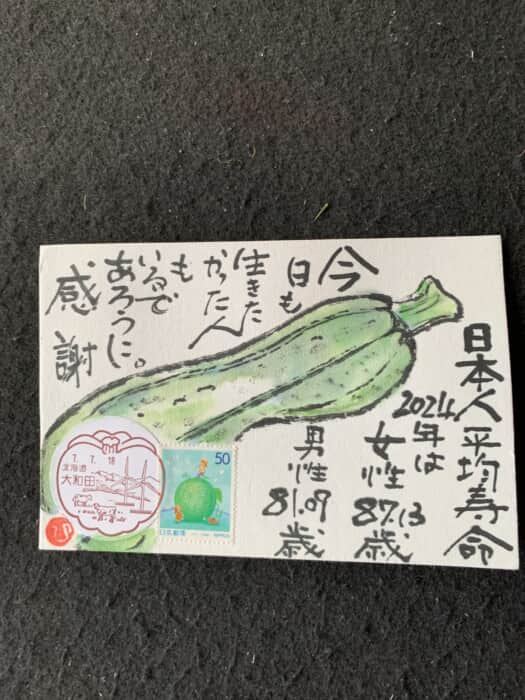 日本人平均寿命
2024年は
女性87.13歳
男性81.09歳
今
日も
生きた
かった人
も
いるで
あろうに。
感謝
50
日本郵便
NIPPON
7.7.18
北海道
大和田